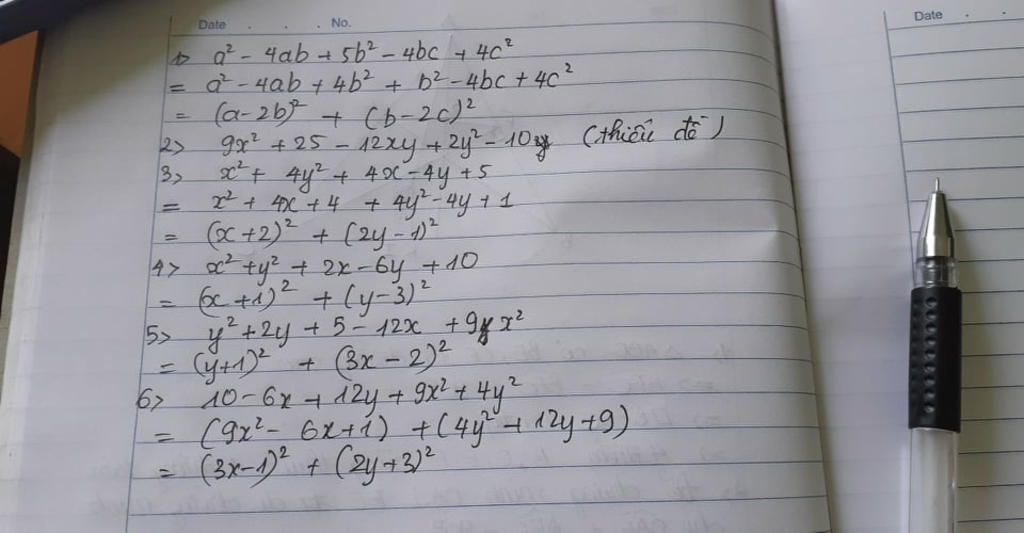 Date . . . No.
1> a² - 4ab + 5b² - 4bc + 4c²
= a² - 4ab + 4b² + b² - 4bc + 4c²
= (a-2b)² + (b-2c)²
2> 9x² + 25 - 12xy + 2y² - 10y (thiếu đề)
3> x² + 4y² + 4x - 4y + 5
= x² + 4x + 4 + 4y² - 4y + 1
= (x+2)² + (2y-1)²
4> x² + y² + 2x - 6y + 10
= (x+1)² + (y-3)²
5> y² + 2y + 5 - 12x + 9x²
= (y+1)² + (3x-2)²
6> 10 - 6x + 12y + 9x² + 4y²
= (9x² - 6x + 1) + (4y² + 12y + 9)
= (3x-1)² + (2y+3)²
Date . .